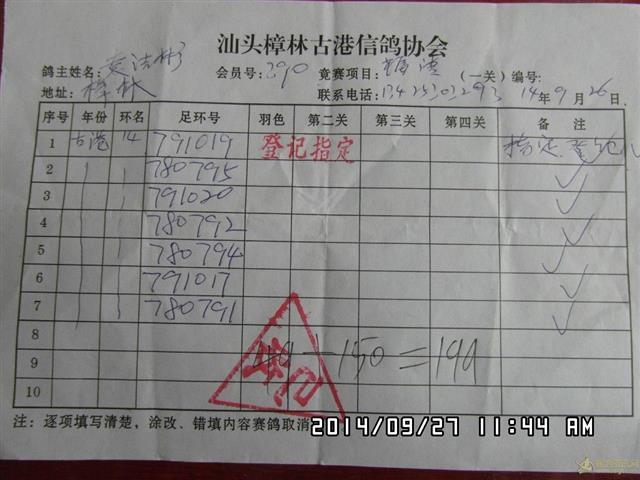 汕头樟林古港信鸽协会
鸽主姓名: 会员号: 390 竞赛项目: (一关) 编号:
地址: 樟林 联系电话: 13425303293 14年9月26日
序号 年份 环名 足环号 羽色 第二关 第三关 第四关 备注
1 古港 14 791019 登记指定 指定登记
2 780795
3 791020
4 780792
5 780794
6 791017
7 780791
8
9 150=199
10
注:逐项填写清楚,涂改、错填内容赛鸽取消
2014/09/27 11:44 AM